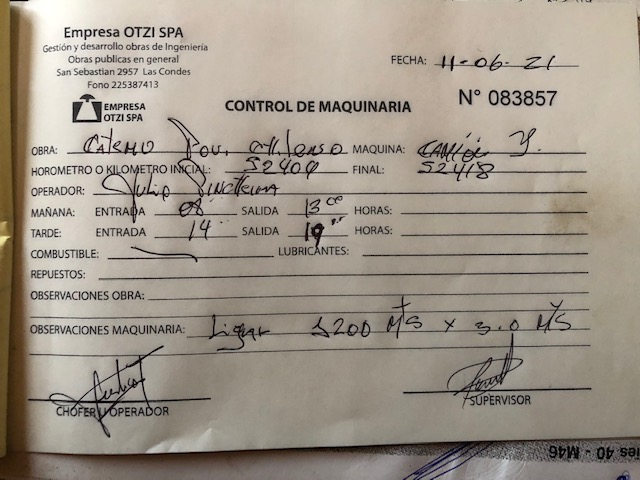 Empresa OTZI SPA
Gestión y desarrollo obras de Ingeniería
Obras públicas en general
San Sebastian 2957 Las Condes
Fono 225387413
FECHA: 11-06-21
EMPRESA
OTZI SPA
CONTROL DE MAQUINARIA
N° 083857
OBRA: MAQUINA: CAMIÓN
HOROMETRO O KILOMETRO INICIAL: 52409 FINAL: 52418
OPERADOR:
MAÑANA: ENTRADA 08 SALIDA 13 00 HORAS:
TARDE: ENTRADA 14 SALIDA 19 HORAS:
COMBUSTIBLE: LUBRICANTES:
REPUESTOS:
OBSERVACIONES OBRA:
OBSERVACIONES MAQUINARIA: 5200 x 3.0
CHOFER U OPERADOR
SUPERVISOR
es 40 - M46